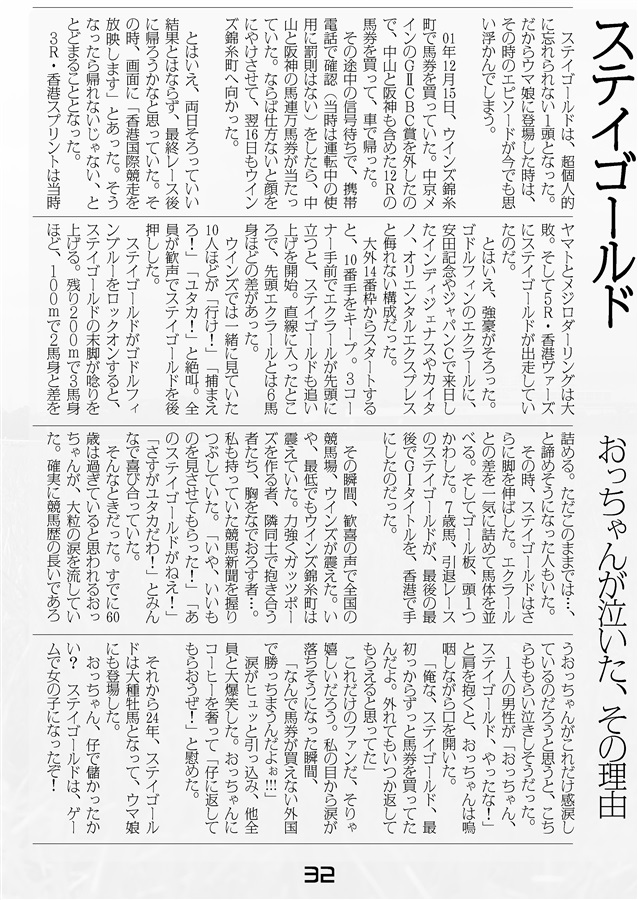 ステイゴールド
おっちゃんが泣いた、その理由
　ステイゴールドは、超個人的
に忘れられない1頭となった。
だからウマ娘に登場した時は、
その時のエピソードが今でも思
い浮かんでしまう。
　01年12月15日、ウインズ錦糸
町で馬券を買っていた。中京メ
インのGⅡCBC賞を外したの
で、中山と阪神も含めた12Rの
馬券を買って、車で帰った。
　その途中の信号待ちで、携帯
電話で確認（当時は運転中の使
用に罰則はない）をしたら、中
山と阪神の馬連万馬券が当たっ
ていた。ならば仕方ないと顔を
にやけさせて、翌16日もウイン
ズ錦糸町へ向かった。
　とはいえ、両日そろっていい
結果とはならず、最終レース後
に帰ろうかなと思っていた。そ
の時、画面に「香港国際競走を
放映します」とあった。そう
なったら帰れないじゃない、と
とどまることとなった。
　3R・香港スプリントは当時
ヤマトとメジロダーリングは大
敗。そして5R・香港ヴァーズ
にステイゴールドが出走してい
たのだ。
　とはいえ、強豪がそろった。
ゴドルフィンのエクラールに、
安田記念やジャパンCで来日し
たインディジェナスやカイタ
ノ、オリエンタルエクスプレス
と侮れない構成だった。
　大外14番枠からスタートする
と、10番手をキープ。3コー
ナー手前でエクラールが先頭に
立つと、ステイゴールドも追い
上げを開始。直線に入ったとこ
ろで、先頭エクラールとは6馬
身ほどの差があった。
　ウインズでは一緒に見ていた
10人ほどが「行け！」「捕まえ
ろ！」「ユタカ！」と絶叫。全
員が歓声でステイゴールドを後
押しした。
　ステイゴールドがゴドルフィ
ンブルーをロックオンすると、
ステイゴールドの末脚が唸りを
上げる。残り200mで3馬身
ほど、100mで2馬身と差を
詰める。ただこのままでは…、
と諦めそうになった人もいた。
　その時、ステイゴールドはさ
らに脚を伸ばした。エクラール
との差を一気に詰めて馬体を並
べる。そしてゴール板、頭1つ
かわした。7歳馬、引退レース
のステイゴールドが、最後の最
後でGⅠタイトルを、香港で手
にしたのだった。
　その瞬間、歓喜の声で全国の
競馬場、ウインズが震えた。い
や、最低でもウインズ錦糸町は
震えていた。力強くガッツポー
ズを作る者、隣同士で抱き合う
者たち、胸をなでおろす者…。
私も持っていた競馬新聞を握り
つぶしていた。「いや、いいも
のを見させてもらった！」「あ
のステイゴールドがねえ！」
「さすがユタカだわ！」とみん
なで喜び合っていた。
　そんなときだった。すでに60
歳は過ぎていると思われるおっ
ちゃんが、大粒の涙を流してい
た。確実に競馬歴の長いであろ
うおっちゃんがこれだけ感涙し
ているのだろうと思うと、こち
らももらい泣きしそうだった。
　1人の男性が「おっちゃん、
ステイゴールド、やったな！」
と肩を抱くと、おっちゃんは嗚
咽しながら口を開いた。
「俺な、ステイゴールド、最
初っからずっと馬券を買ってた
んだよ。外れてもいつか返して
もらえると思ってた」
　これだけのファンだ、そりゃ
嬉しいだろう。私の目から涙が
落ちそうになった瞬間、
「なんで馬券が買えない外国
で勝っちまうんだよぉ!!!」
　涙がヒュッと引っ込み、他全
員と大爆笑した。おっちゃんに
コーヒーを奢って「仔に返して
もらおうぜ！」と慰めた。
　それから24年、ステイゴール
ドは大種牡馬となって、ウマ娘
にも登場した。
　おっちゃん、仔で儲かったか
い？　ステイゴールドは、ゲー
ムで女の子になったぞ！
32